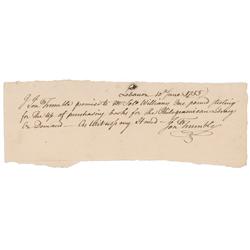 Lebanon 10th June 1755
I Jon Trumble promise to Mr Solo Williams One pound sterling
for the use of purchasing books for the Philogramican Library
on Demand — As Witness my Hand — Jon Trumble